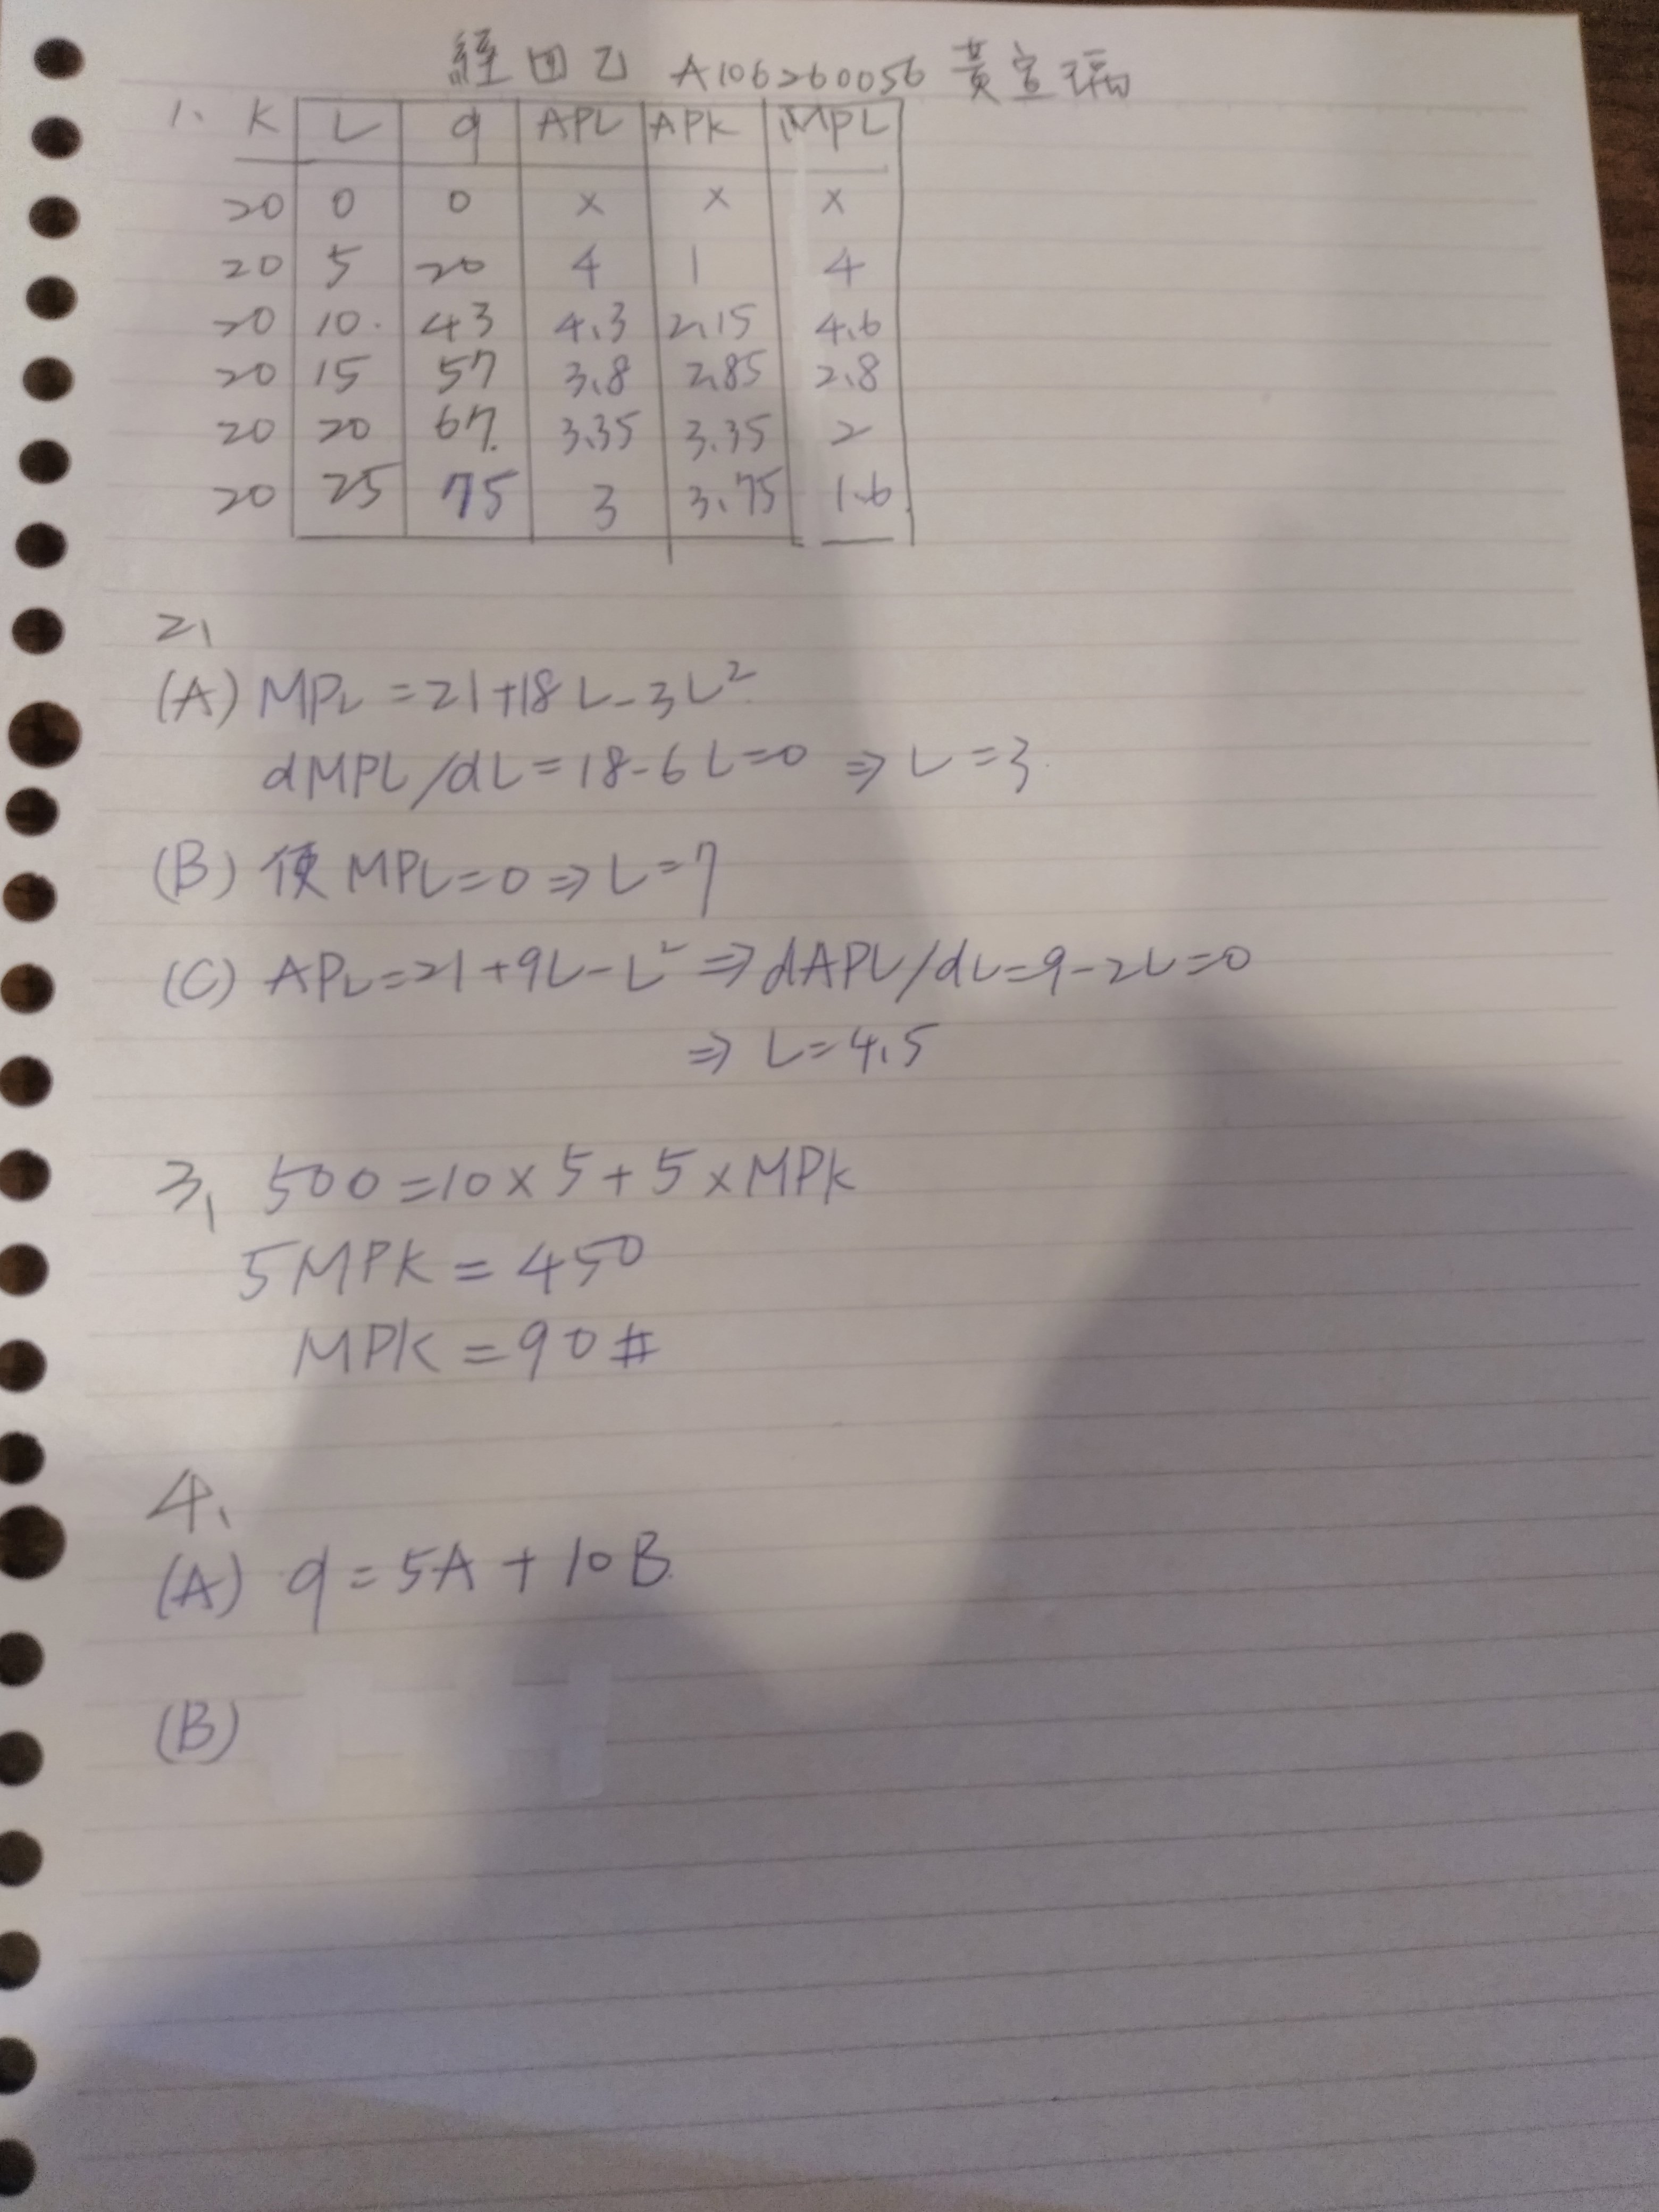 經四乙 A106260056 黃宣
1、 K L q APL APK MPL
20 0 0 × × ×
20 5 20 4 1 4
20 10. 43 4.3 2.15 4.6
20 15 57 3.8 2.85 2.8
20 20 67. 3.35 3.35 2
20 25 75 3 3.75 1.6
2、
(A) MPL = 21+18L-3L²
dMPL/dL = 18-6L=0 ⇒ L=3
(B) 使 MPL=0 ⇒ L=7
(C) APL=21+9L-L² ⇒ dAPL/dL=9-2L=0
⇒ L=4.5
3、 500=10×5+5×MPK
5MPK = 450
MPK = 90#
4、
(A) q=5A+10B
(B)